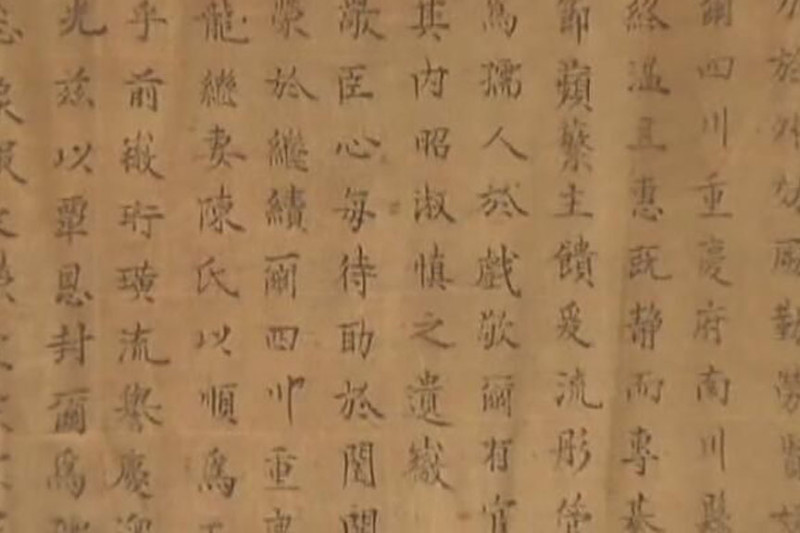 於外效厥勤勞
爾四川重慶府南川縣
終溫且惠既靜而專
節蘋蘩主饋爰流彤管
為孺人於戲敬爾有官
其內昭淑慎之遺徽
敬臣心每待助於閨閫
榮於繼續爾四川重慶
龍繼妻陳氏以順為
乎前徽珩璜流譽慶
光茲以覃恩封爾為